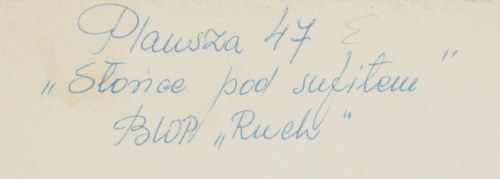 Plansza 47 E
„Słońce pod sufitem”
BWA „Ruch”